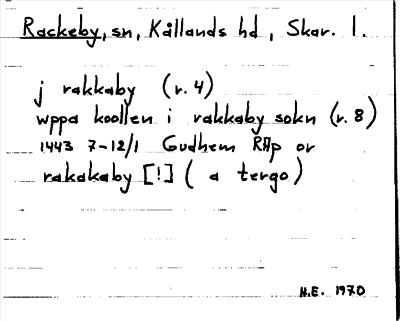 Rackeby, sn, Kållands hd, Skar. l.
j rakkaby (r. 4)
wppa koollen i rakkaby sokn (r. 8)
1443 7-12/1 Gudhem RAp or
rakakaby [!] (a tergo)
H.E. 1970